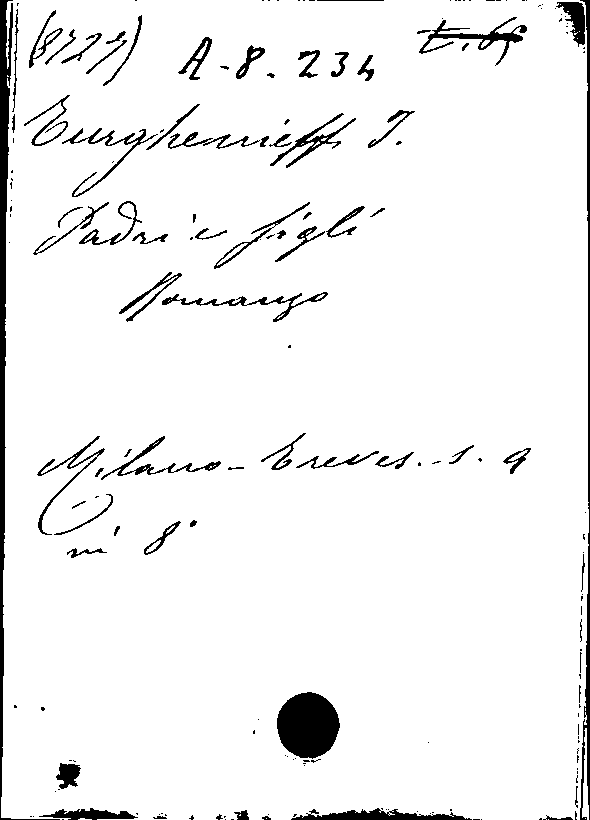 (8727) A-8.234
Turghenieff I.
Padri e figli
Romanzo
Milano - Treves. - s. a
in 8°